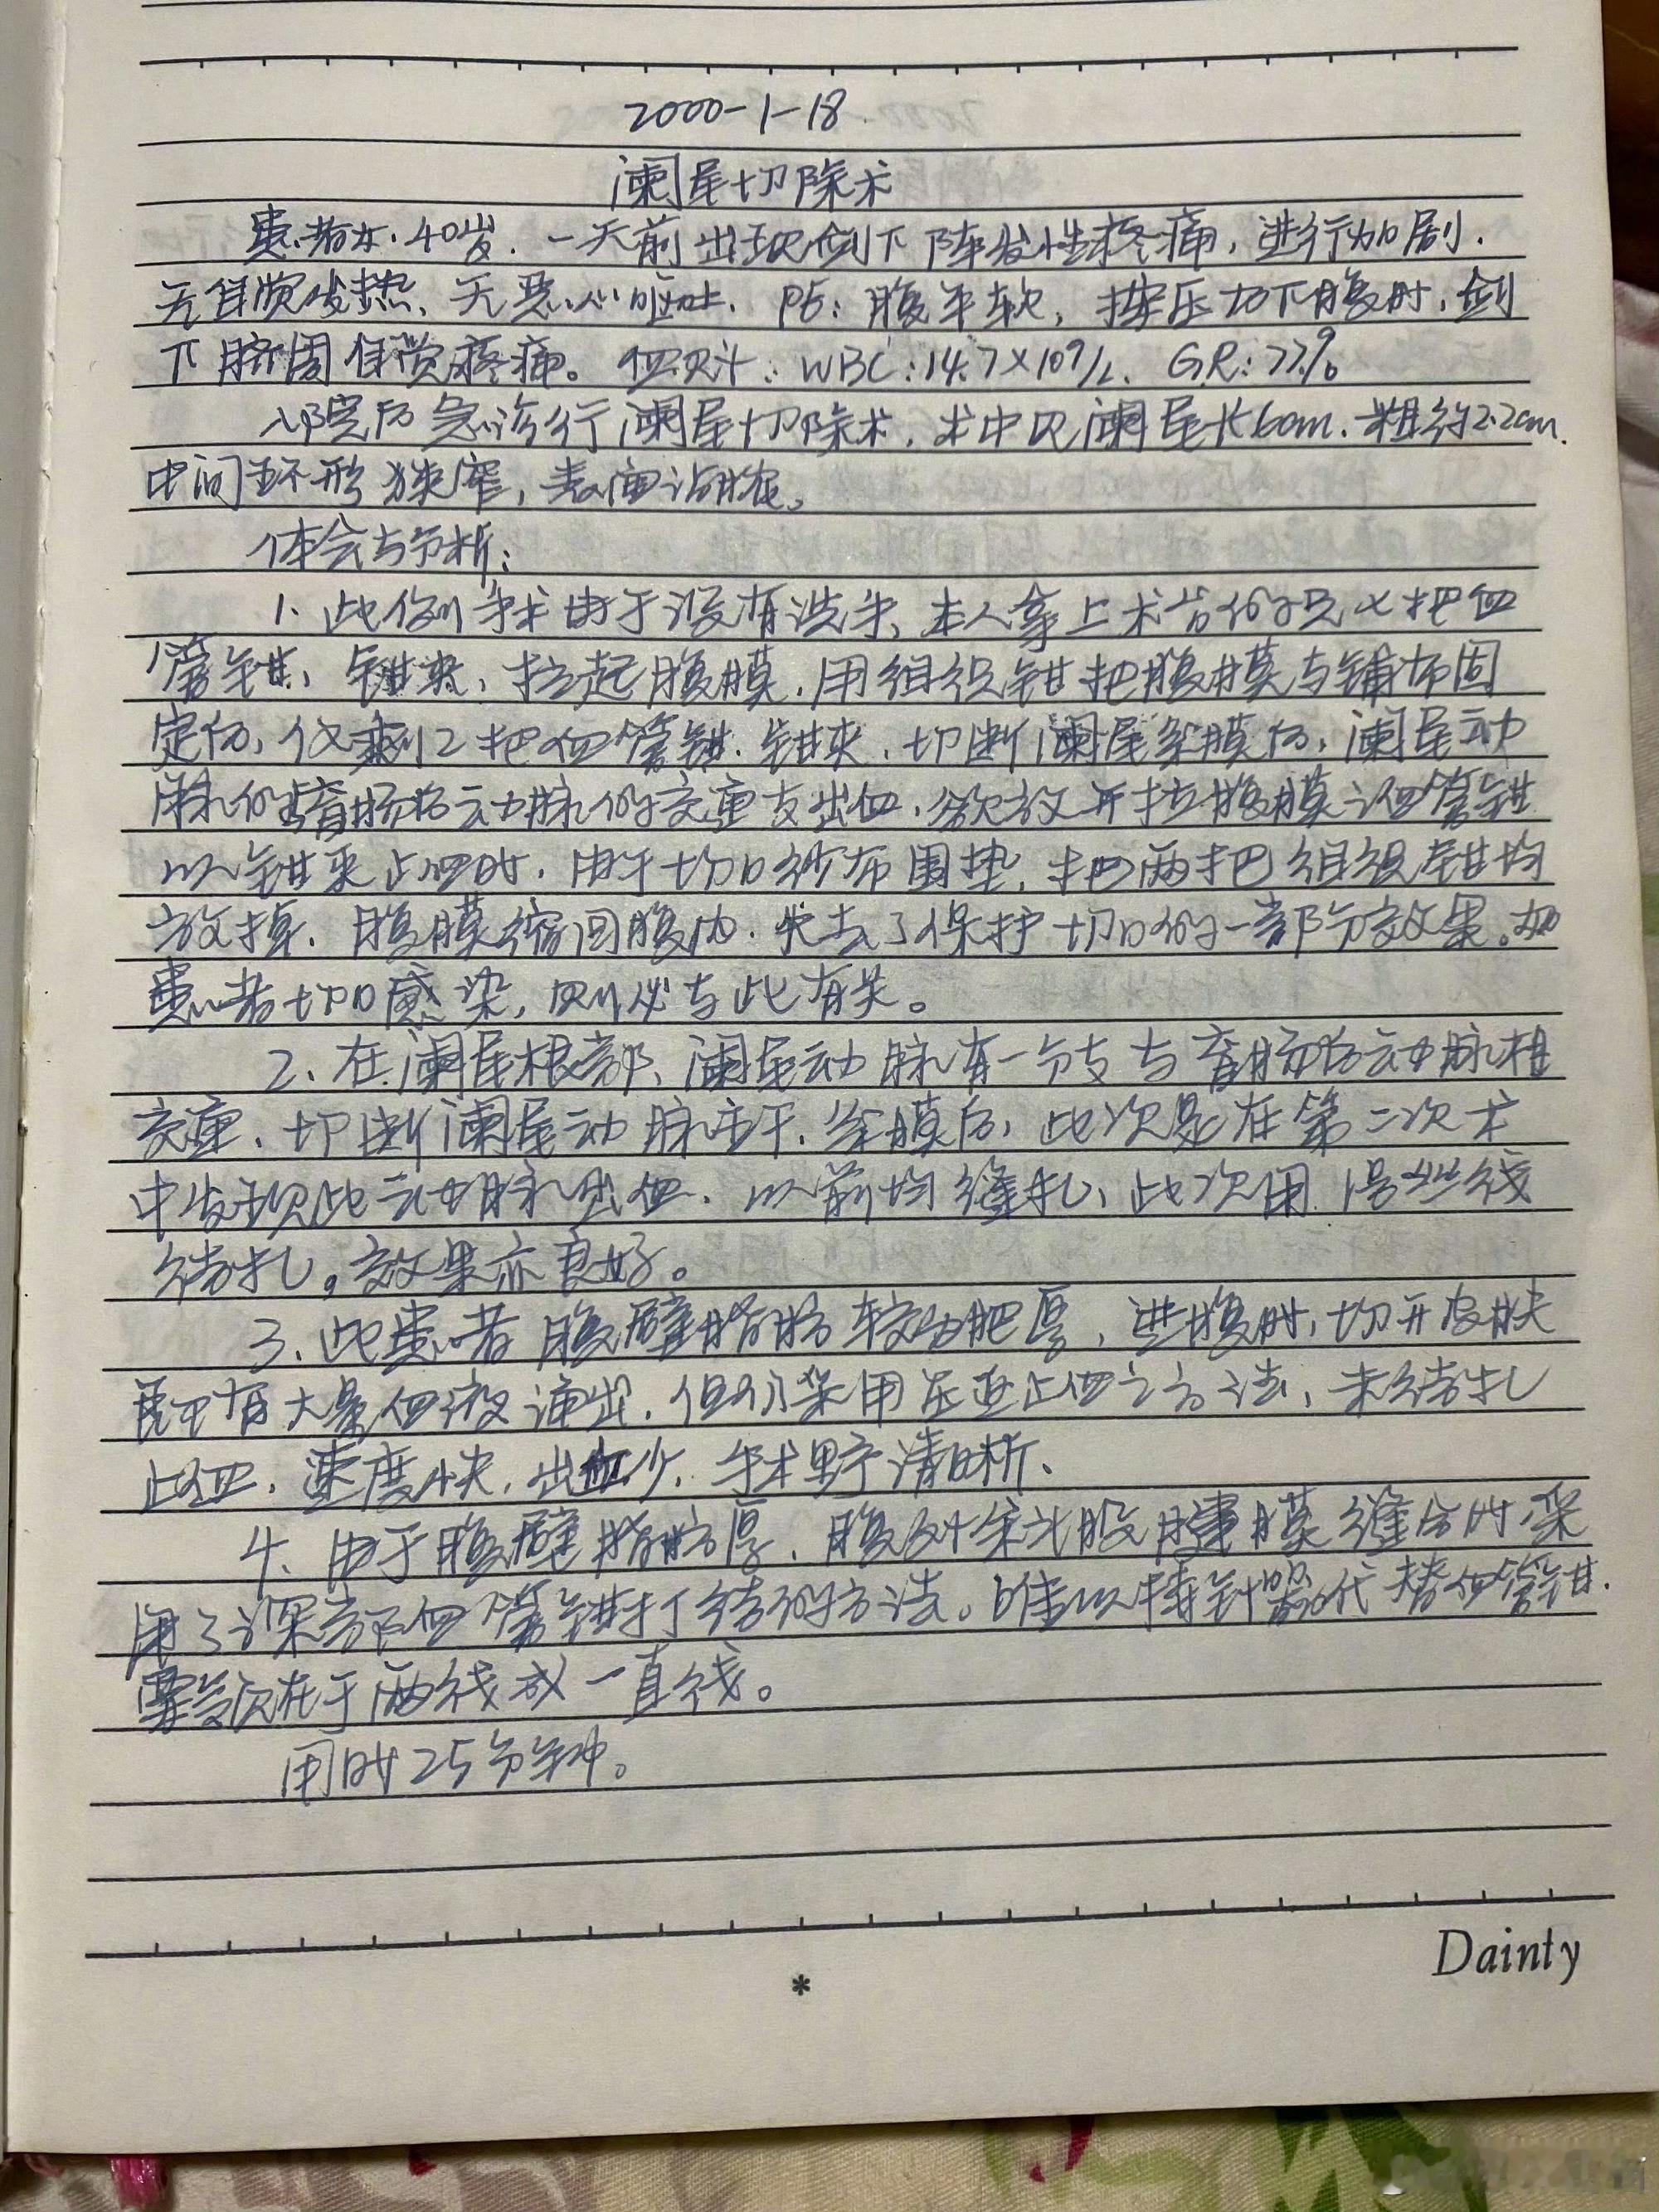 2000-1-18
阑尾切除术
患者女.40岁.一天前出现剑下阵发性疼痛,进行加剧.
无自觉发热、无恶心呕吐. PE:腹平软,按压右下腹时,剑
下脐周自觉疼痛。血象计:WBC:14.7×10⁹/L、GR:77%
入院后急诊行阑尾切除术,术中见阑尾长6cm.粗约2.2cm.
中间环形狭窄,表面沾脓。
体会与分析:
1.此例手术由于没有洗手、本人拿上术台的只4把血
管钳、钳夹、拉起腹膜.用组织钳把腹膜与铺布固
定后,仅剩2把血管钳.钳夹、切断阑尾系膜后,阑尾动
脉的盲肠后动脉的交通支出血.欲放开拉腹膜之血管钳
以钳夹止血时.由于切口纱布围垫,把两把组织钳均
放掉.腹膜缩回腹内.失去了保护切口的一部分效果。如
患者切口感染,则必与此有关。
2、在阑尾根部、阑尾动脉有一分支与盲肠后动脉相
交通、切断阑尾动脉主干.系膜后,此次是在第二次术
中发现此动脉出血.以前均缝扎、此次用1号丝线
结扎。效果亦良好。
3、此患者腹壁脂肪较为肥厚,进腹时,切开皮肤
即有大量血液涌出.但仍采用压迫止血之方法,未结扎
止血.速度快.出血少.手术野清晰、
4、由于腹壁脂肪厚.腹外斜肌腱膜缝合时采
用了深部血管钳打结的方法。唯以持针器代替血管钳.
需注意在于两线成一直线。
用时25分钟。
Dainty